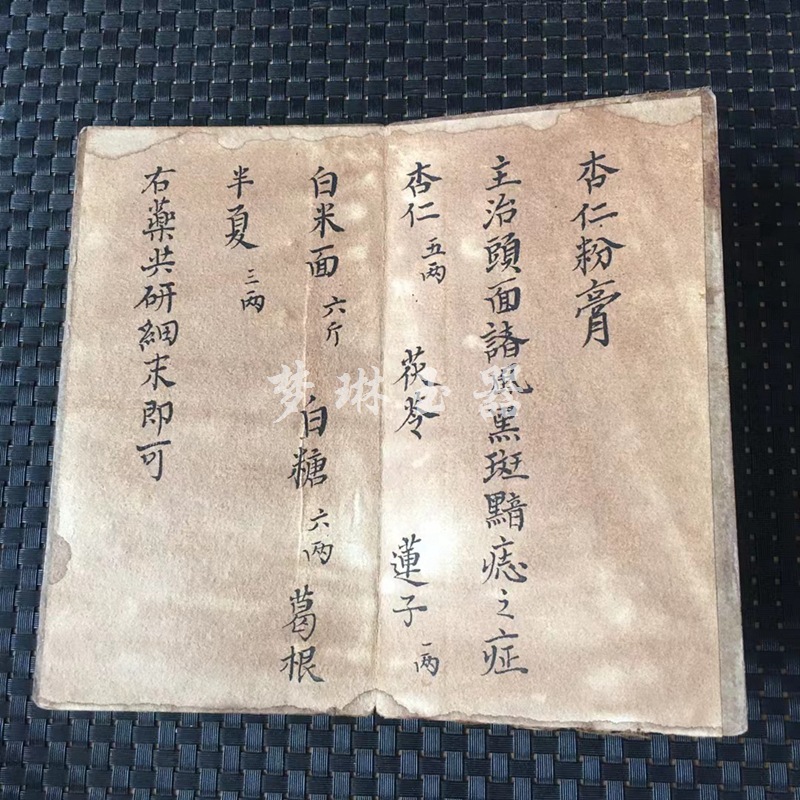 杏仁粉膏
主治頭面諸風黑斑黯痣之症
杏仁 五兩 茯苓 蓮子 一兩
白米面 六斤 白糖 六兩 葛根
半夏 三兩
右藥共研細末即可
梦琳玉器